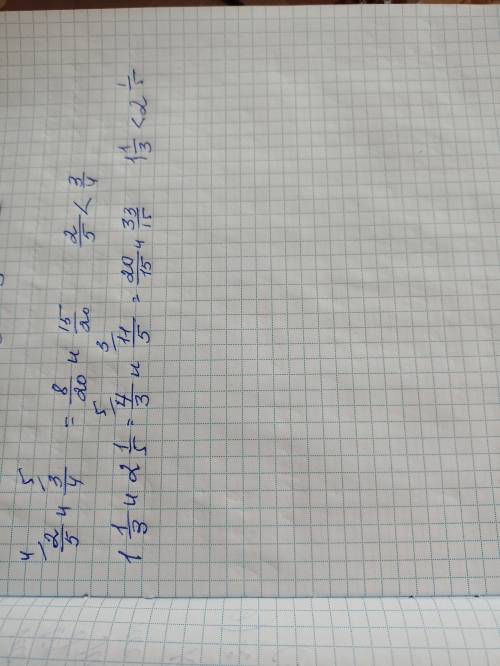 4 5
2/5 и 3/4 = 8/20 и 15/20 2/5 < 3/4
5 3
1 1/3 и 2 1/5 = 4/3 и 11/5 = 20/15 и 33/15 1 1/3 < 2 1/5